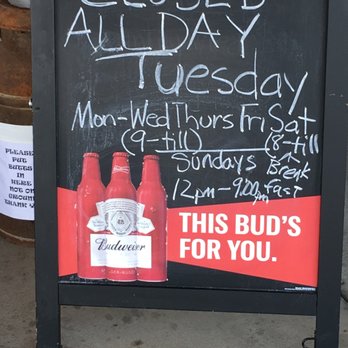 CLOSED
ALL DAY
Tuesday
Mon-Wed Thurs Fri Sat
(9-till) (8-till
Sundays Break
12pm-9:00pm fast
PLEASE
PUT
BUTTS
IN
HERE
NOT ON
GROUND
THANK Y
Budweiser
THIS BUD'S
FOR YOU.